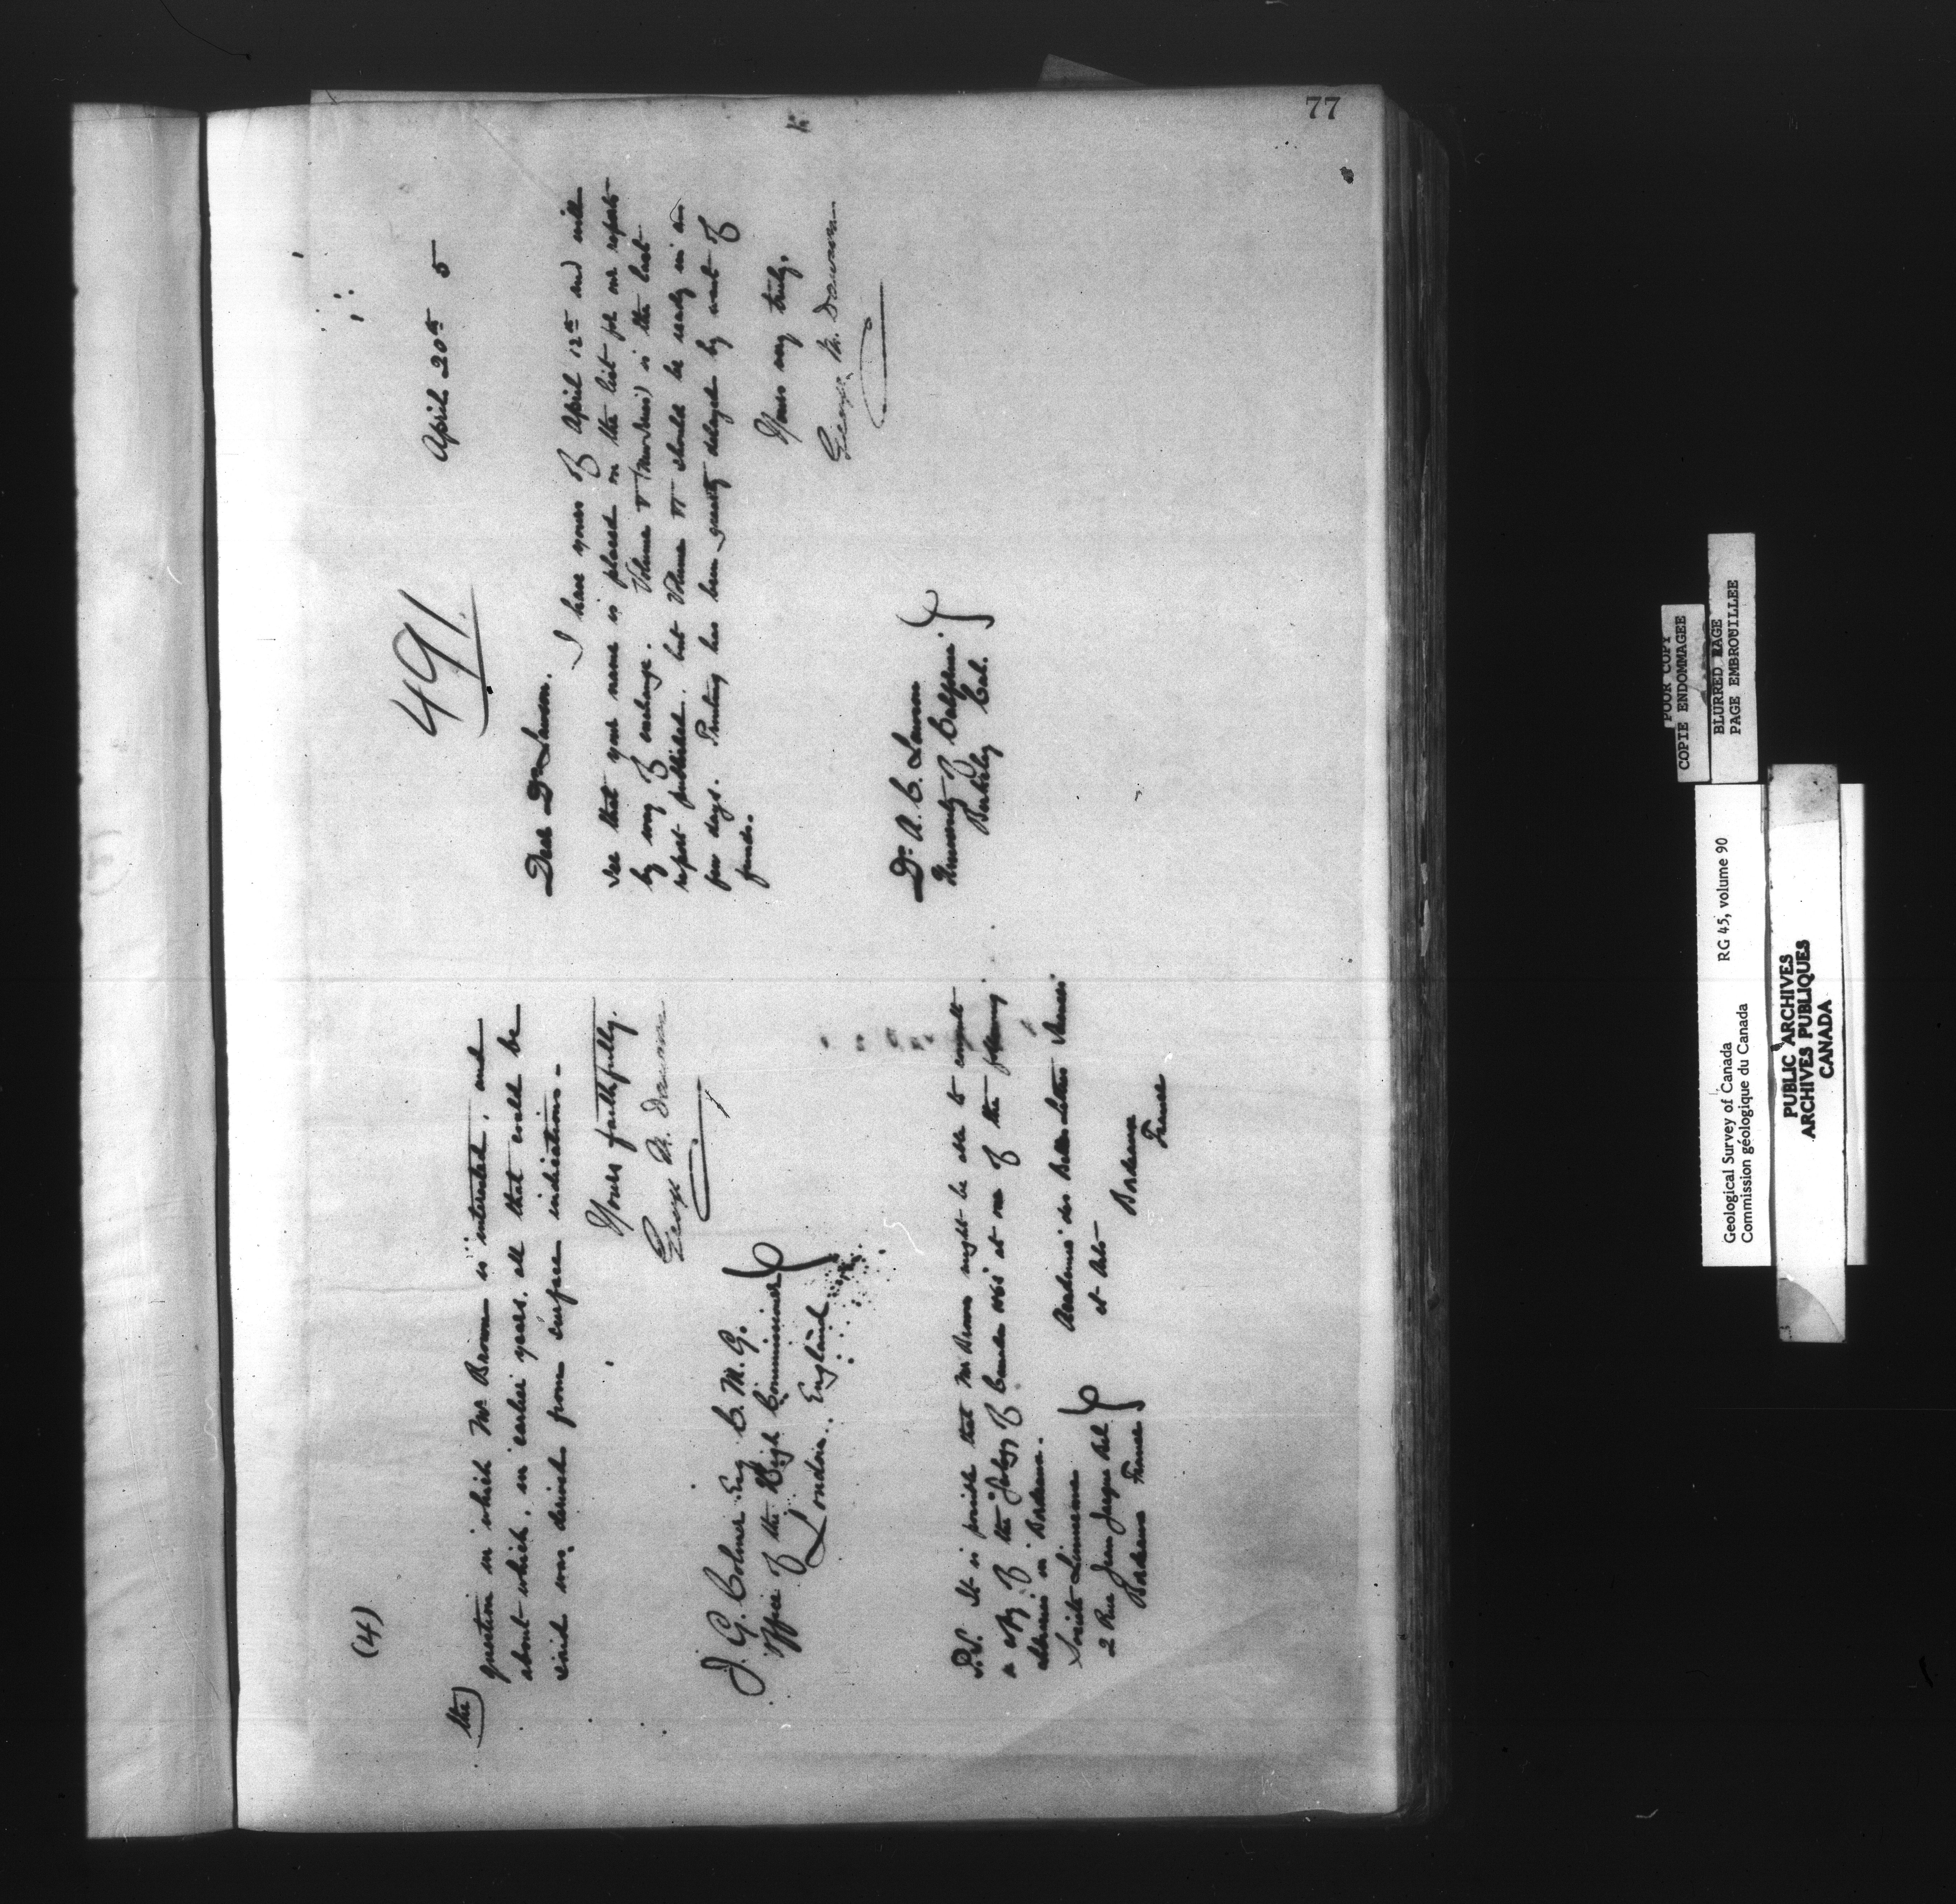 77
(4)
the) question in which Mr Brown is interested, and
about which, in earlier years, all that could be
said was derived from surface indications -
Yours faithfully.
George M. Dawson
J. G. Colmer Esq C. M. G.
Office of the High Commissioner
London. England
P.S. It is possible that Mr Brown might be able to consult
a copy of the "Geology of Canada 1863" at one of the following
libraries in Bordeaux.
Société Linnéenne
2 Rue Jean Jacques Bel
Bordeaux France
Academie des Belles Lettres Sciences
et Arts
Bordeaux
France
491
April 20th 5
Dear Dr Lawson.
I have yours of April 12th and will
see that your name is placed on the list for our reports
by way of exchange. Volume V (New Series) is the last
report published, but Volume VI should be ready in a
few days. Printing has been greatly delayed by want of
funds.
Yours very truly.
George M. Dawson
Dr. A. C. Lawson
University of California.
Berkeley Cal.
POOR COPY
COPIE ENDOMMAGEE
BLURRED PAGE
PAGE EMBROUILLEE
Geological Survey of Canada RG 45, volume 90
Commission géologique du Canada
PUBLIC ARCHIVES
ARCHIVES PUBLIQUES
CANADA